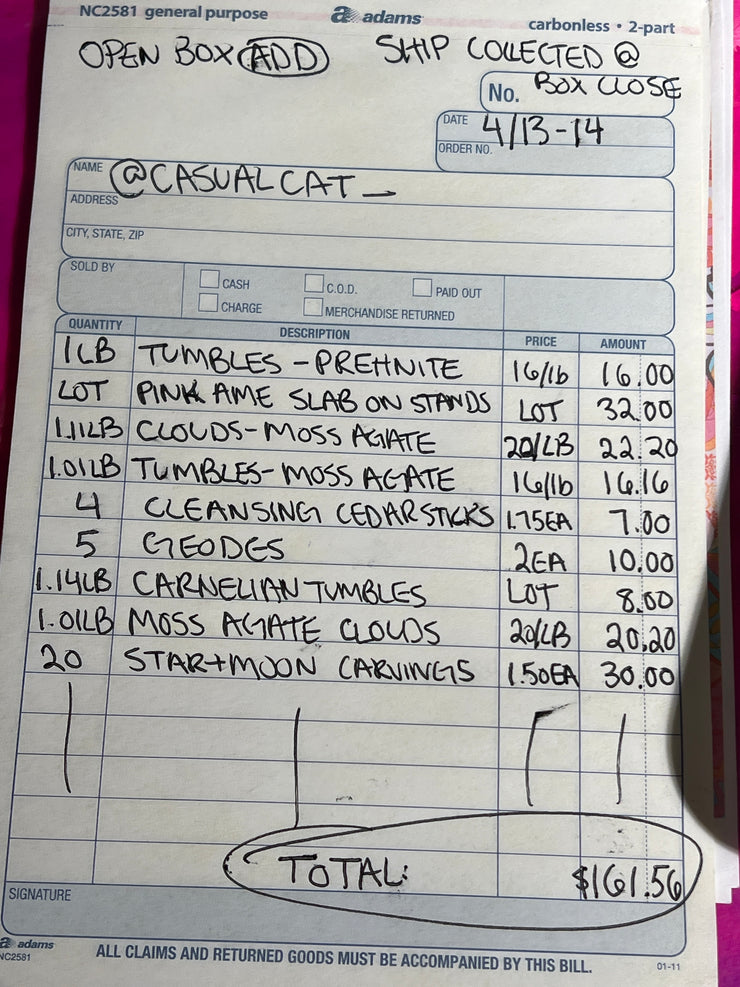 NC2581 general purpose
adams
carbonless • 2-part
OPEN BOX ADD
SHIP COLLECTED @
BOX CLOSE
No.
DATE 4/13-14
ORDER NO.
NAME @CASUALCAT_
ADDRESS
CITY, STATE, ZIP
SOLD BY
CASH C.O.D. PAID OUT
CHARGE MERCHANDISE RETURNED
QUANTITY DESCRIPTION PRICE AMOUNT
1LB TUMBLES - PREHNITE 16/lb 16.00
LOT PINK AME SLAB ON STANDS LOT 32.00
1.11LB CLOUDS - MOSS AGATE 20/LB 22.20
1.01LB TUMBLES - MOSS AGATE 16/lb 16.16
4 CLEANSING CEDAR STICKS 1.75EA 7.00
5 GEODES 2EA 10.00
1.14LB CARNELIAN TUMBLES LOT 8.00
1.01LB MOSS AGATE CLOUDS 20/LB 20.20
20 STAR+MOON CARVINGS 1.50EA 30.00
TOTAL: $161.56
SIGNATURE
adams
NC2581
ALL CLAIMS AND RETURNED GOODS MUST BE ACCOMPANIED BY THIS BILL.
01-11